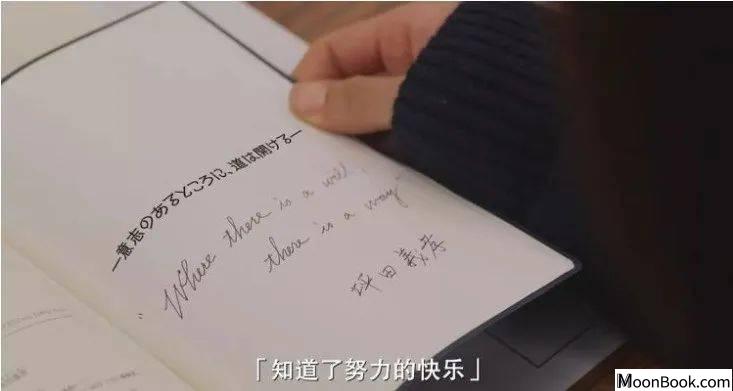 —意志のあるところに、道は開ける—
"Where there is a will,
there is a way"
坪田義彦
「知道了努力的快乐」
MoonBook.com